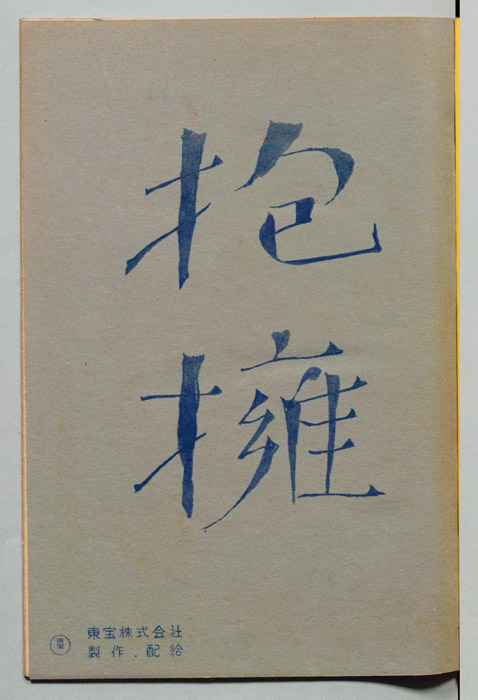 抱
擁
東宝株式会社
製作.配給